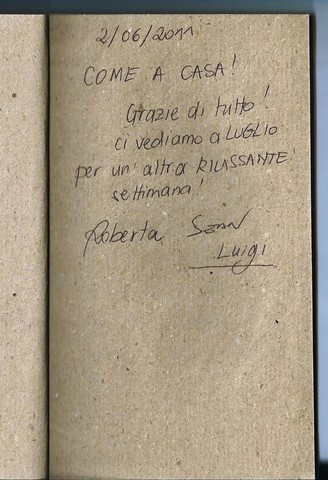 2/06/2011
COME A CASA!
Grazie di tutto!
ci vediamo a LUGLIO
per un'altra RILASSANTE
settimana!
Roberta
Luigi